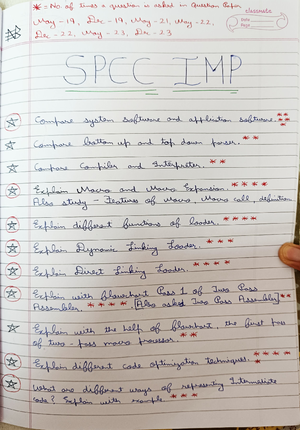 * = No of times a question is asked in Question Paper
classmate
Date
Page
May-19, Dec-19, May-21, May-22,
Dec-22, May-23, Dec-23
SPCC IMP
Compare system software and application software. ***
Compare bottom up and top down parser. **
Compare Compiler and Interpreter. **
Explain Macro and Macro Expansion. ****
Also study - Features of Macro, Macro call, definition
Explain different functions of loader. ****
Explain Dynamic Linking Loader. ***
Explain Direct Linking Loader. ****
Explain with flowchart Pass 1 of Two Pass
Assembler. **** [Also asked Two Pass Assembler]***
Explain with the help of flowchart, the first pass
of two-pass macro processor. **
Explain different code optimization techniques. *****
What are different ways of representing Intermediate
code? Explain with example. ***